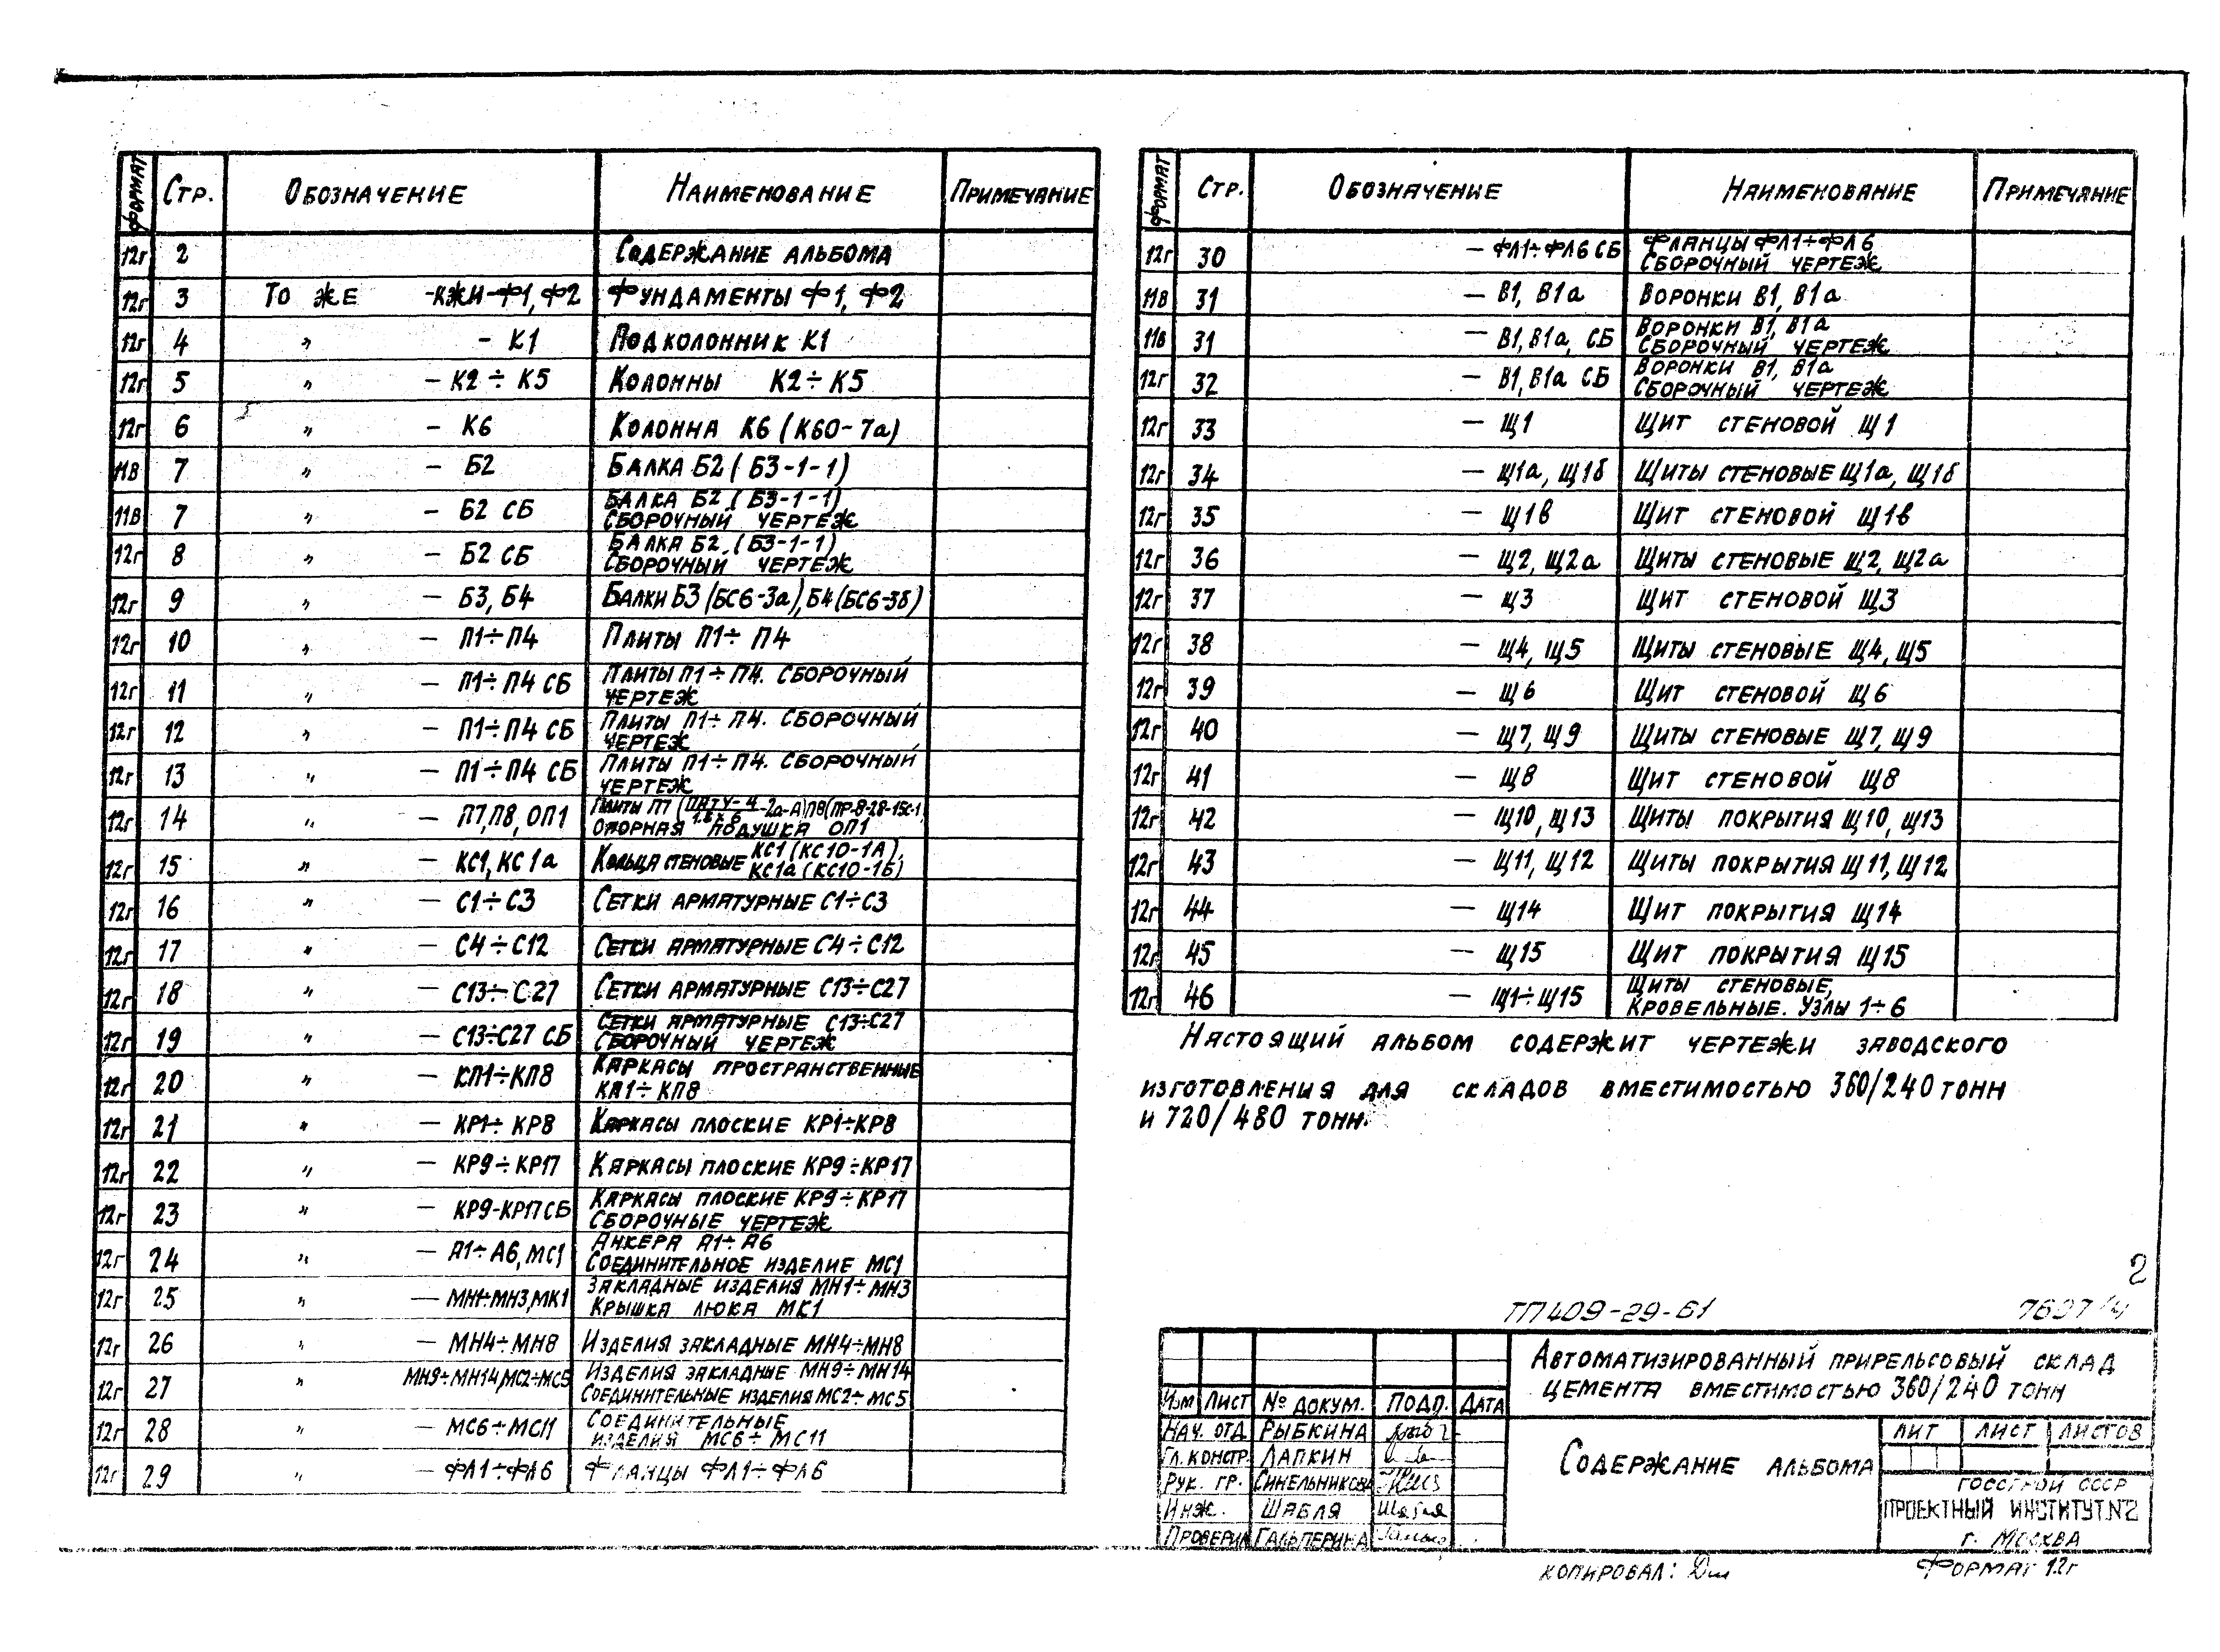 Формат Стр. Обозначение Наименование Примечание
12г 2 Содержание альбома
12г 3 То же -КЖИ-Ф1, Ф2 Фундаменты Ф1, Ф2
12г 4 " - К1 Подколонник К1
12г 5 " - К2÷К5 Колонны К2÷К5
12г 6 " - К6 Колонна К6 (К60-7а)
11В 7 " - Б2 Балка Б2 (Б3-1-1)
11В 7 " - Б2 СБ Балка Б2 (Б3-1-1)
Сборочный чертеж
12г 8 " - Б2 СБ Балка Б2 (Б3-1-1)
Сборочный чертеж
12г 9 " - Б3, Б4 Балки Б3 (БС6-3а), Б4 (БС6-3б)
12г 10 " - П1÷П4 Плиты П1÷П4
12г 11 " - П1÷П4 СБ Плиты П1÷П4. Сборочный
чертеж
12г 12 " - П1÷П4 СБ Плиты П1÷П4. Сборочный
чертеж
12г 13 " - П1÷П4 СБ Плиты П1÷П4. Сборочный
чертеж
12г 14 " - П7, П8, ОП1 Плиты П7 -2а-А) П8 (ПР-8-28-15с-1)
Опорная подушка ОП1
12г 15 " - КС1, КС1а Кольца стеновые КС1 (КС10-1А),
КС1а (КС10-1Б)
12г 16 " - С1÷С3 Сетки арматурные С1÷С3
12г 17 " - С4÷С12 Сетки арматурные С4÷С12
12г 18 " - С13÷С27 Сетки арматурные С13÷С27
12г 19 " - С13÷С27 СБ Сетки арматурные С13÷С27
Сборочный чертеж
12г 20 " - КП1÷КП8 Каркасы пространственные
КП1÷КП8
12г 21 " - КР1÷КР8 Каркасы плоские КР1÷КР8
12г 22 " - КР9÷КР17 Каркасы плоские КР9÷КР17
12г 23 " - КР9-КР17 СБ Каркасы плоские КР9÷КР17
Сборочные чертеж
12г 24 " - А1÷А6, МС1 Анкера А1÷А6
Соединительное изделие МС1
12г 25 " - МН1÷МН3, МК1 Закладные изделия МН1÷МН3
Крышка люка МК1
12г 26 " - МН4÷МН8 Изделия закладные МН4÷МН8
12г 27 " МН9÷МН14, МС2÷МС5 Изделия закладные МН9÷МН14
Соединительные изделия МС2÷МС5
12г 28 " - МС6÷МС11 Соединительные
изделия МС6÷МС11
12г 29 " - ФЛ1÷ФЛ6 Фланцы ФЛ1÷ФЛ6
Формат Стр. Обозначение Наименование Примечание
12г 30 - ФЛ1÷ФЛ6 СБ Фланцы ФЛ1÷ФЛ6
Сборочный чертеж
11В 31 - В1, В1а Воронки В1, В1а
11В 31 - В1, В1а, СБ Воронки В1, В1а
Сборочный чертеж
12г 32 - В1, В1а СБ Воронки В1, В1а
Сборочный чертеж
12г 33 - Щ1 Щит стеновой Щ1
12г 34 - Щ1а, Щ1б Щиты стеновые Щ1а, Щ1б
12г 35 - Щ1в Щит стеновой Щ1в
12г 36 - Щ2, Щ2а Щиты стеновые Щ2, Щ2а
12г 37 - Щ3 Щит стеновой Щ3
12г 38 - Щ4, Щ5 Щиты стеновые Щ4, Щ5
12г 39 - Щ6 Щит стеновой Щ6
12г 40 - Щ7, Щ9 Щиты стеновые Щ7, Щ9
12г 41 - Щ8 Щит стеновой Щ8
12г 42 - Щ10, Щ13 Щиты покрытия Щ10, Щ13
12г 43 - Щ11, Щ12 Щиты покрытия Щ11, Щ12
12г 44 - Щ14 Щит покрытия Щ14
12г 45 - Щ15 Щит покрытия Щ15
12г 46 - Щ1÷Щ15 Щиты стеновые,
кровельные. Узлы 1÷6
Настоящий альбом содержит чертежи заводского
изготовления для складов вместимостью 360/240 тонн
и 720/480 тонн.
2
ТП 409-29-61 7607/4
Автоматизированный прирельсовый склад
цемента вместимостью 360/240 тонн
Изм Лист № докум. Подп. Дата
Нач. отд. Рыбкина
Гл. констр. Лапкин
Рук. гр. Синельникова
Инж. Шабля
Проверил Гальперина
Содержание альбома
Лит Лист Листов
Госстрой СССР
Проектный институт №2
г. Москва
Копировал:
Формат 12г